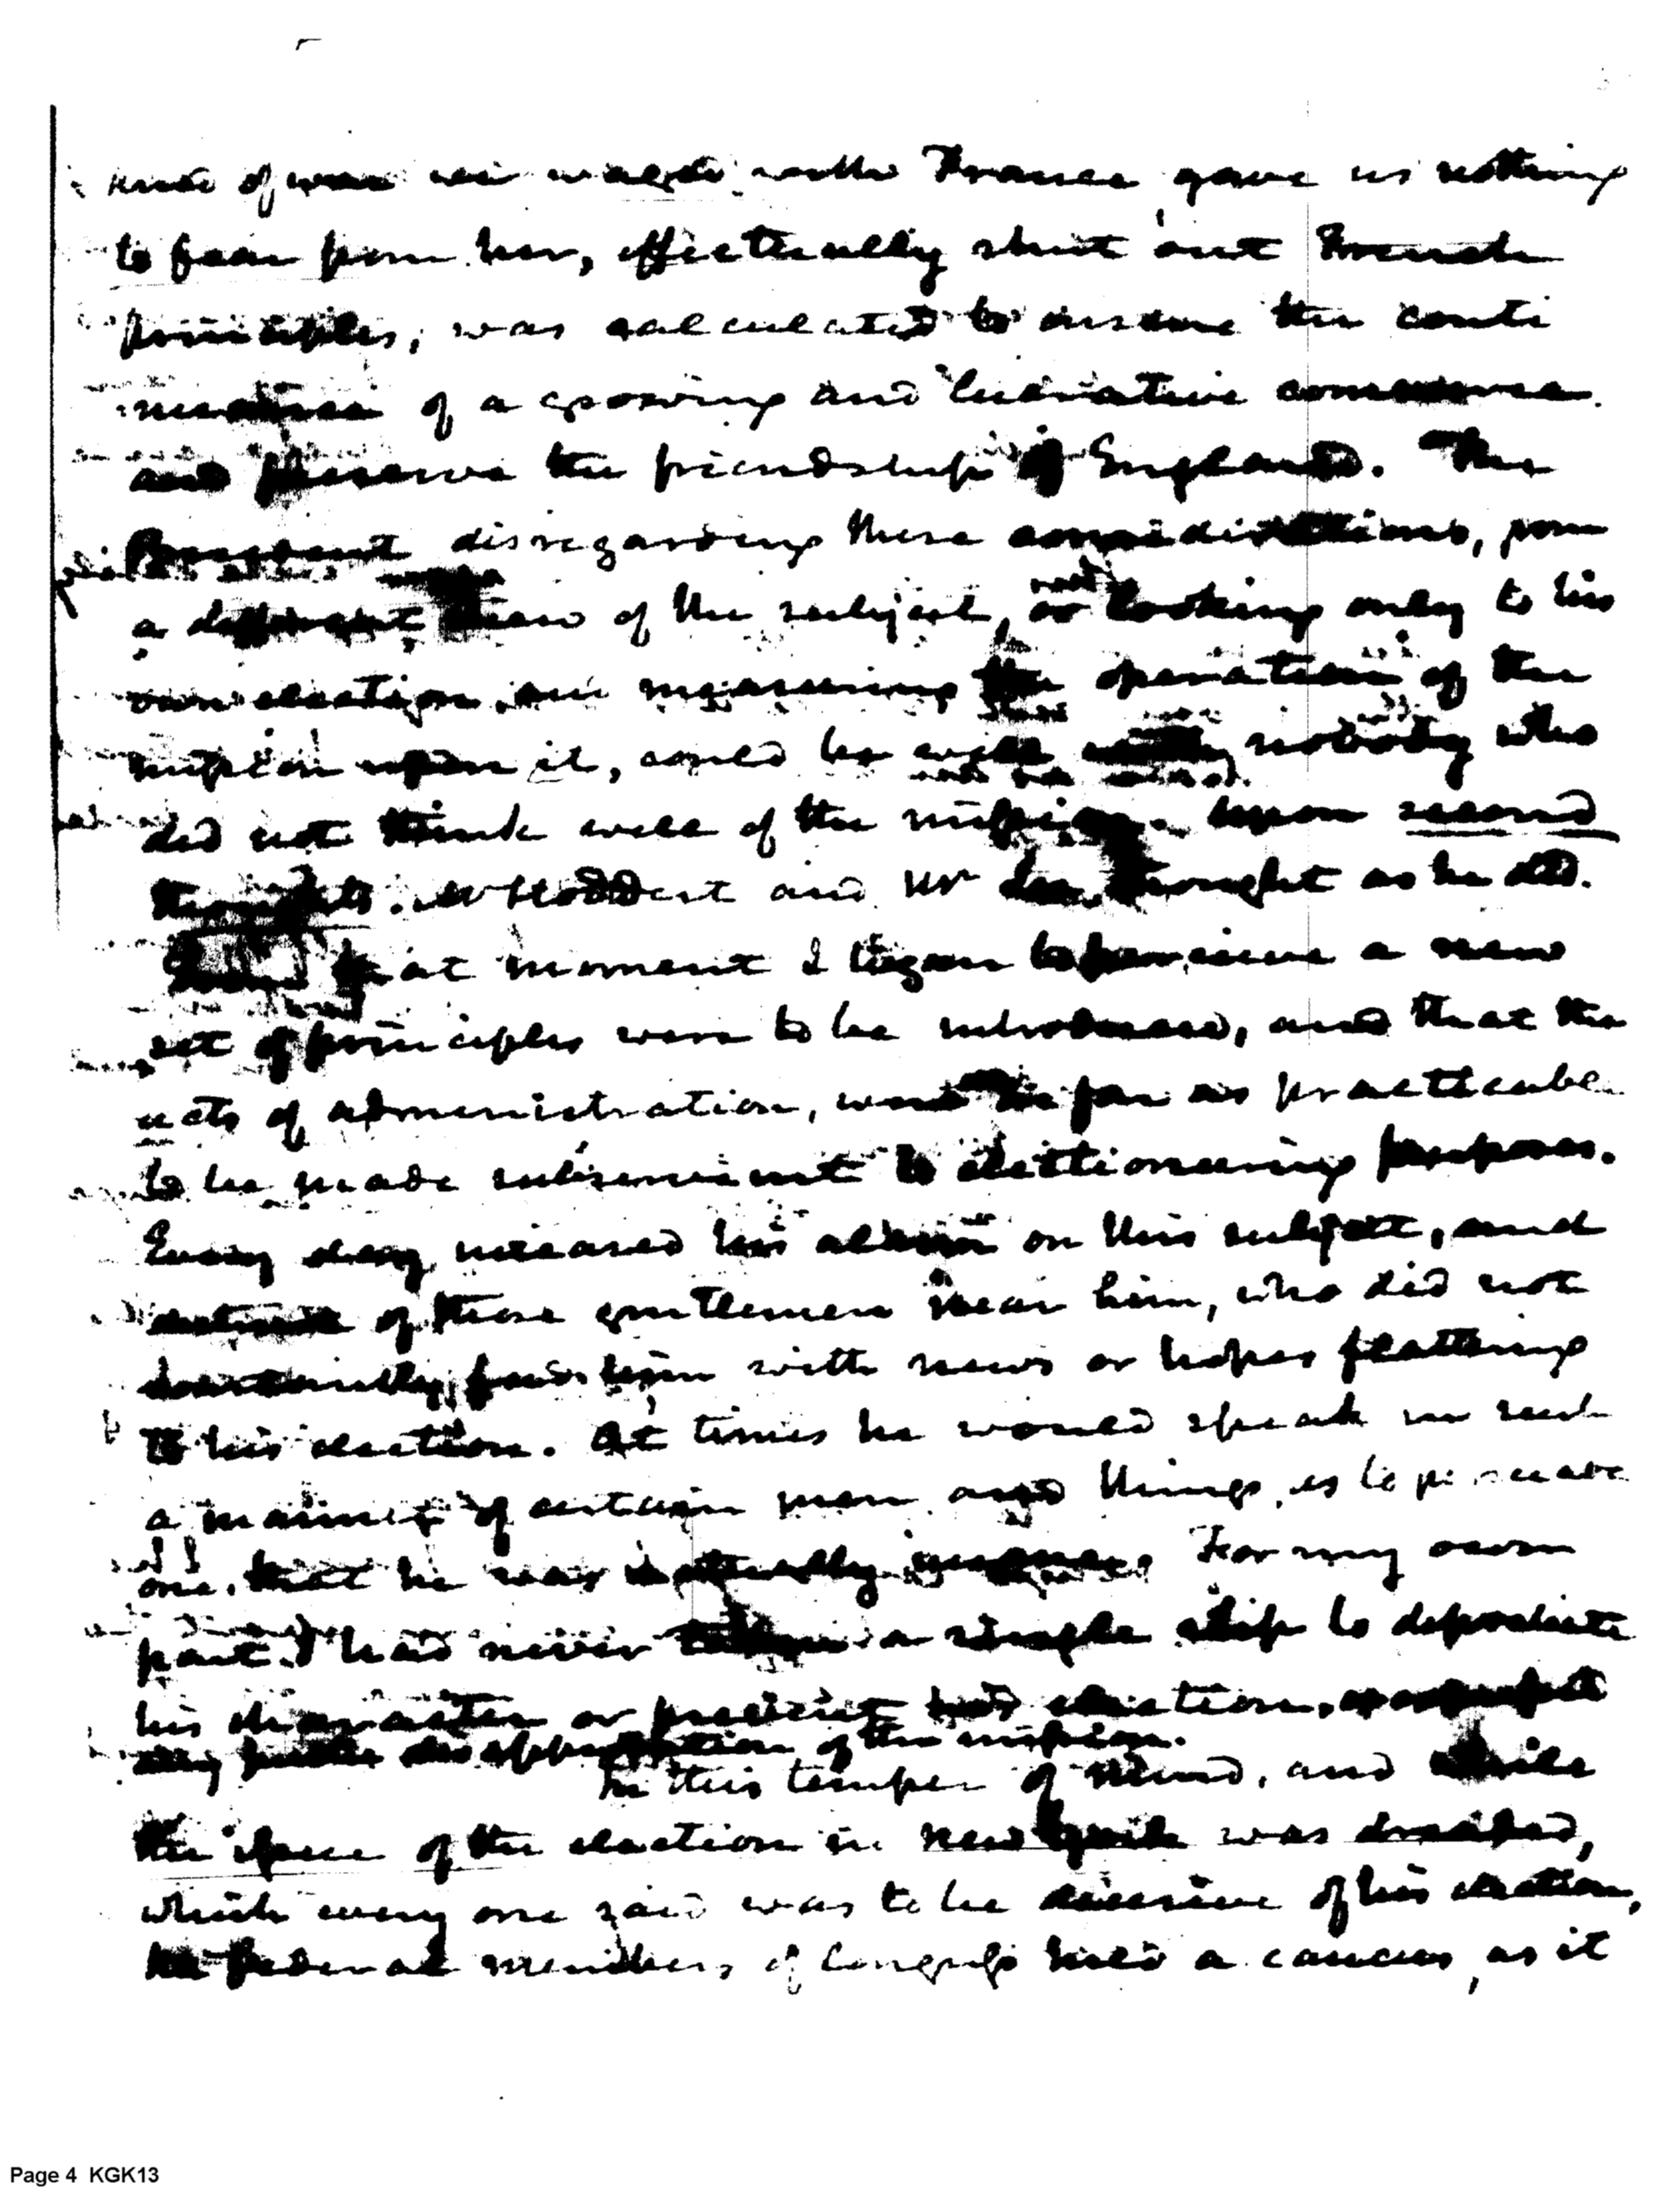 kind of war we waged with France gave us nothing
to fear from her, effectually shut out French
principles, was calculated to insure the conti
nuance of a growing and lucrative commerce
and preserve the friendship of England. The
President disregarding these considerations, from
a different view of the subject, or looking only to his
own election and measuring the operation of the
mission upon it, could be well with nobody who
did not think well of the mission. Upon second
thoughts Mr Stoddert and Mr Lee thought as he did.
From that moment I began to perceive a new
set of principles were to be introduced, and that the
acts of administration, were as far as practicable
to be made subservient to electioneering purposes.
Every day increased his alarm on this subject, and
of those gentlemen near him, who did not
constantly feed him with news or hopes flattering
to his election. At times he would speak in such
a manner of certain men and things, as to persuade
one that he was actually insane. For my own
part I had never taken a single step to depreciate
his character or prevent his election, or
any public disapprobation of the mission.
In this temper of mind, and while
the issue of the election in New York was
which every one said was to be decisive of his election,
the Federal members of Congress held a caucus, as it
Page 4 KGK13